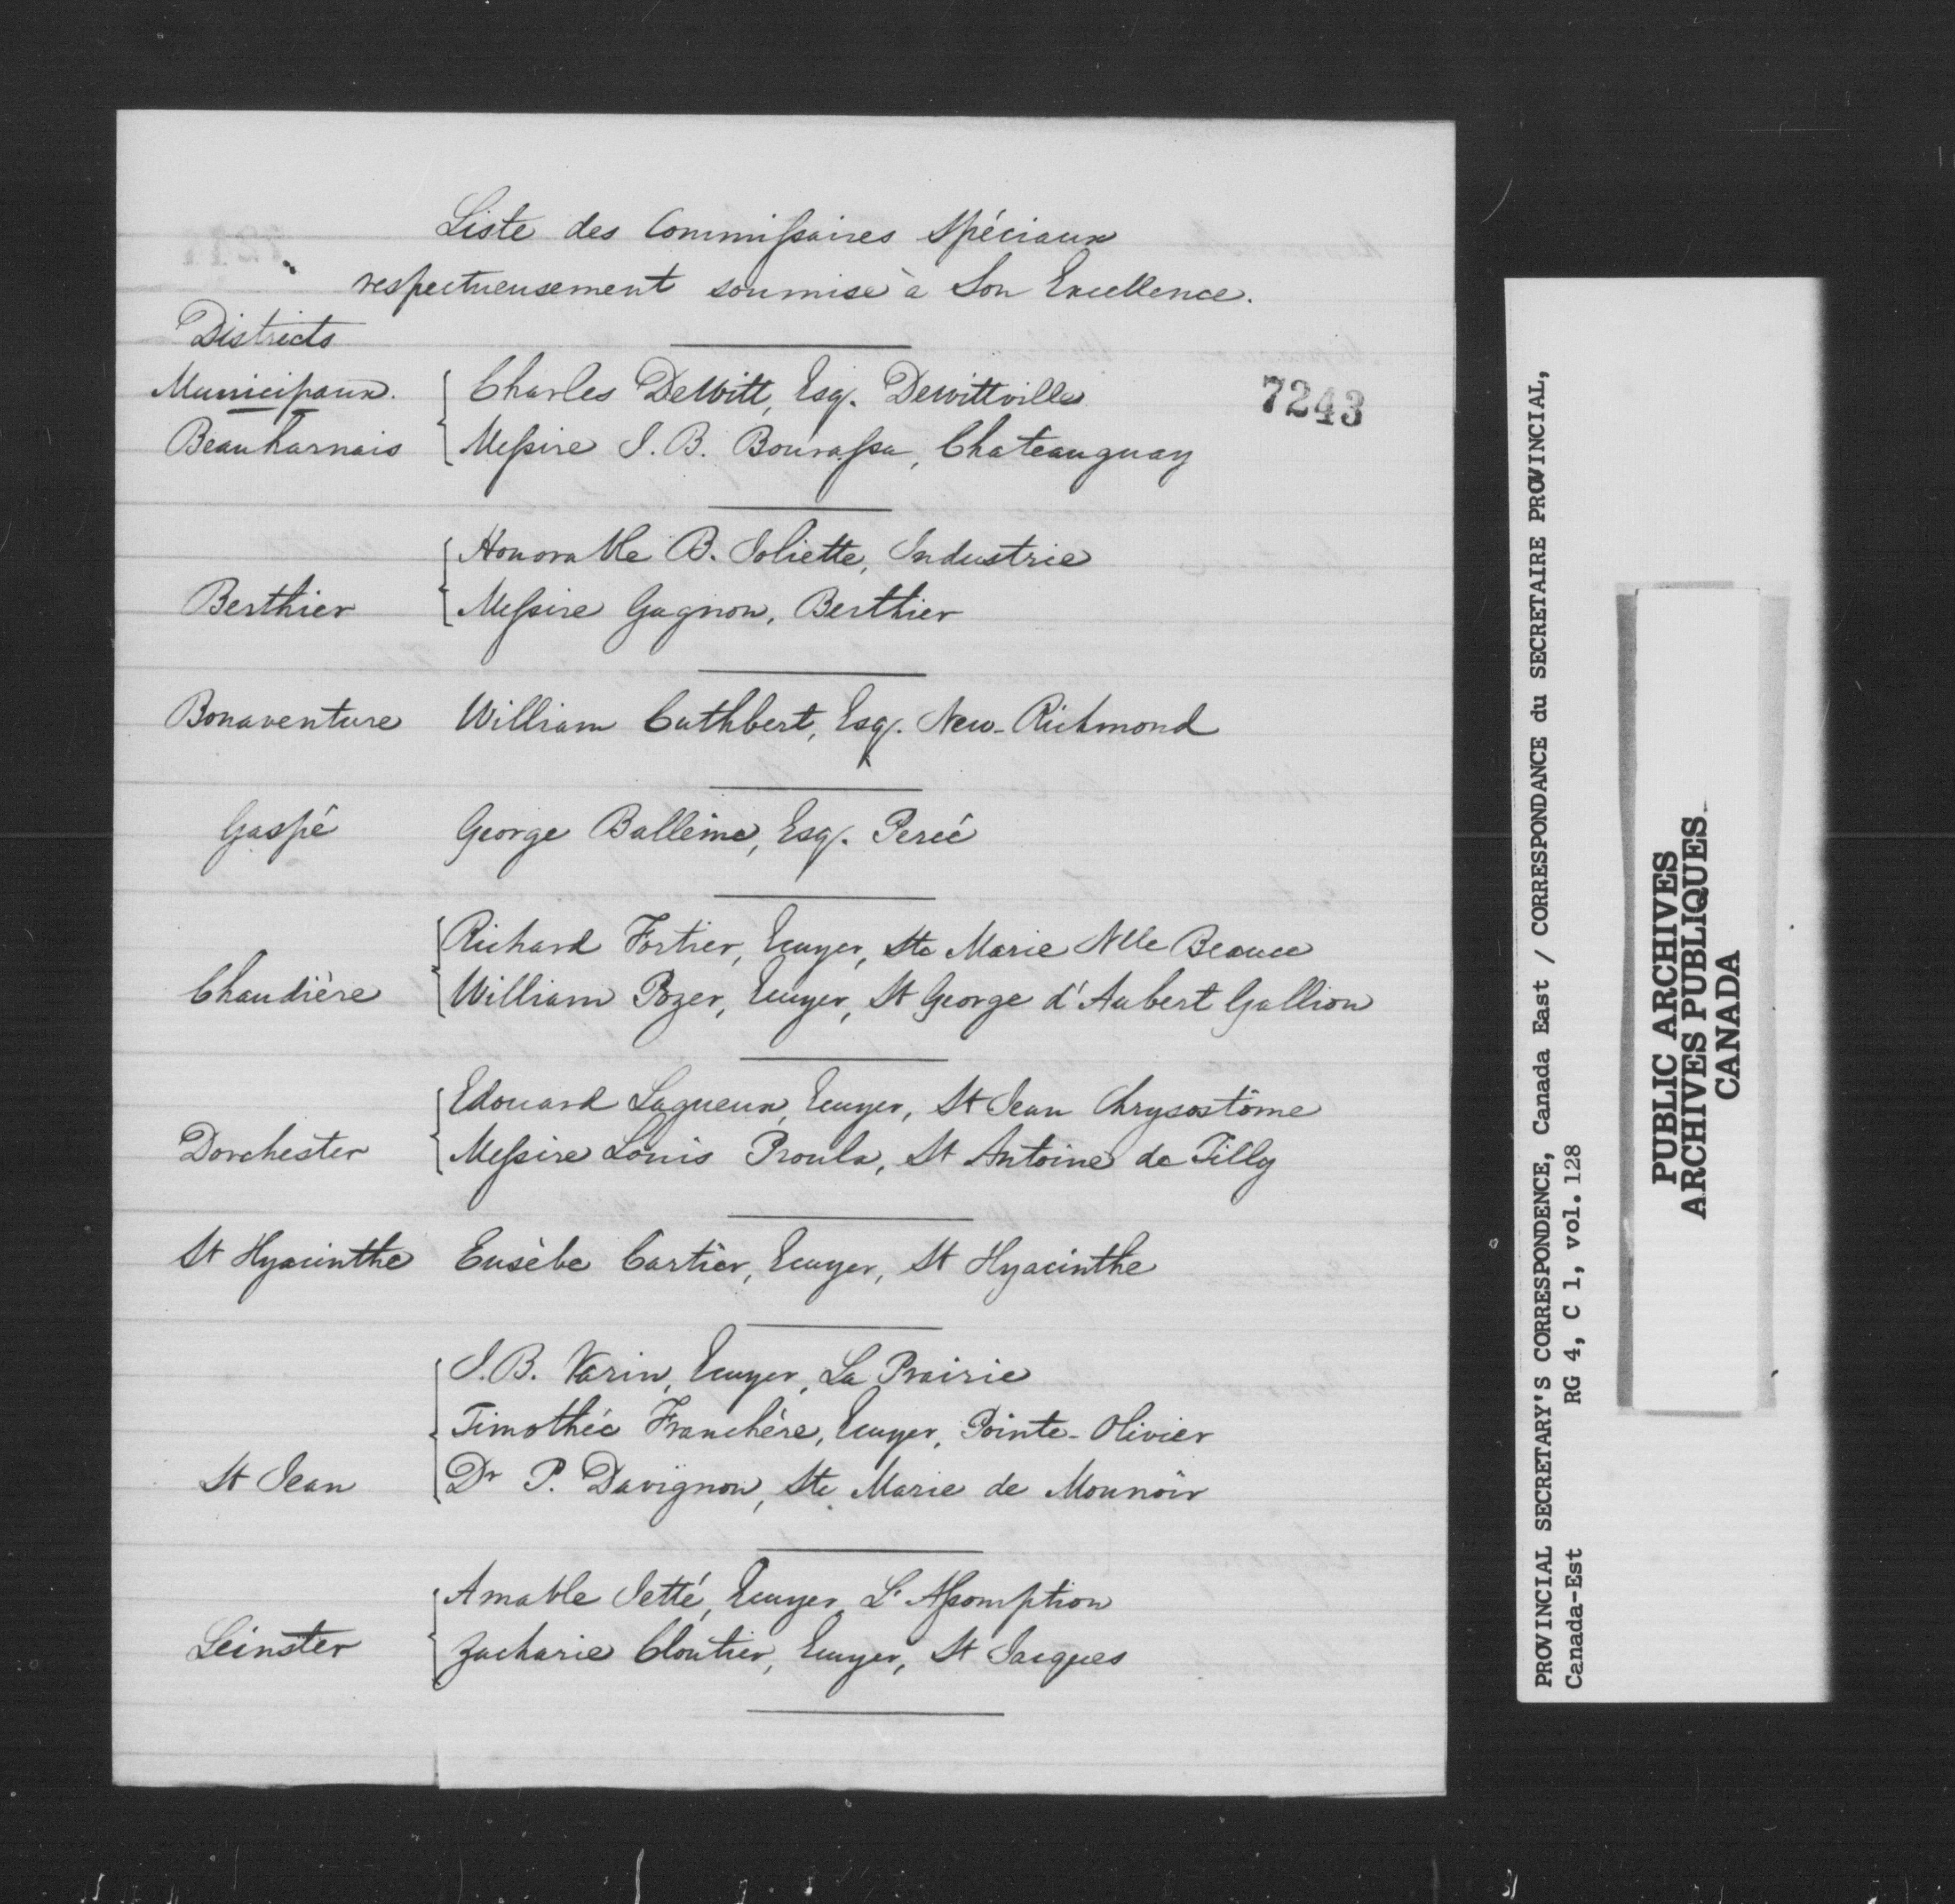 Liste des Commissaires Spéciaux
respectueusement soumise à Son Excellence.
Districts
Municipaux.
7243
Beauharnais
Charles DeWitt, Esq. Dewittville
Messire J. B. Bourassa, Chateauguay
Berthier
Honorable B. Joliette, Industrie
Messire Gagnon, Berthier
Bonaventure William Cuthbert, Esq. New-Richmond
Gaspé George Balleine, Esq. Percé
Chaudière
Richard Fortier, Ecuyer, Ste Marie Nlle Beauce
William Pozer, Ecuyer, St George d'Aubert Gallion
Dorchester
Edouard Lagueux, Ecuyer, St Jean Chrysostôme
Messire Louis Proulx, St Antoine de Tilly
St Hyacinthe Eusèbe Cartier, Ecuyer, St Hyacinthe
St Jean
J. B. Varin, Ecuyer, La Prairie
Timothée Franchère, Ecuyer, Pointe-Olivier
Dr P. Davignon, Ste Marie de Monnoir
Leinster
Amable Jetté, Ecuyer, L'Assomption
Zacharie Cloutier, Ecuyer, St Jacques
PROVINCIAL SECRETARY'S CORRESPONDENCE, Canada East / CORRESPONDANCE du SECRETAIRE PROVINCIAL,
Canada-Est RG 4, C 1, vol. 128
PUBLIC ARCHIVES
ARCHIVES PUBLIQUES
CANADA